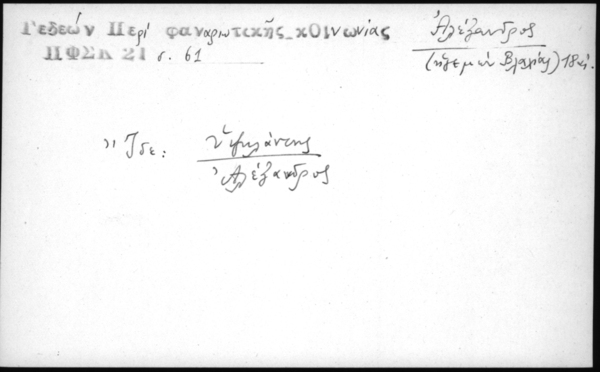 Γεδεών Περί φαναριωτικῆς κοινωνίας
ΠΦΣΚ 21 σ. 61
Ἀλέξανδρος
(ἡγεμὼν Βλαχίας) 18 αἰ.
Ἴδε: Ὑψηλάντης
Ἀλέξανδρος